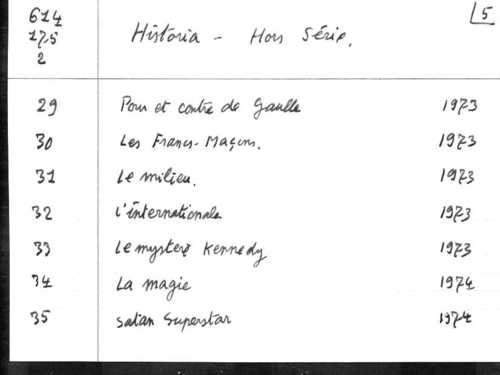 614
175
2
Historia - Hors Série.
5
29 Pour et contre de Gaulle 1973
30 Les Francs-Maçons. 1973
31 Le milieu. 1973
32 L'internationale 1973
33 Le mystère Kennedy 1973
34 La magie 1974
35 Satan Superstar 1974